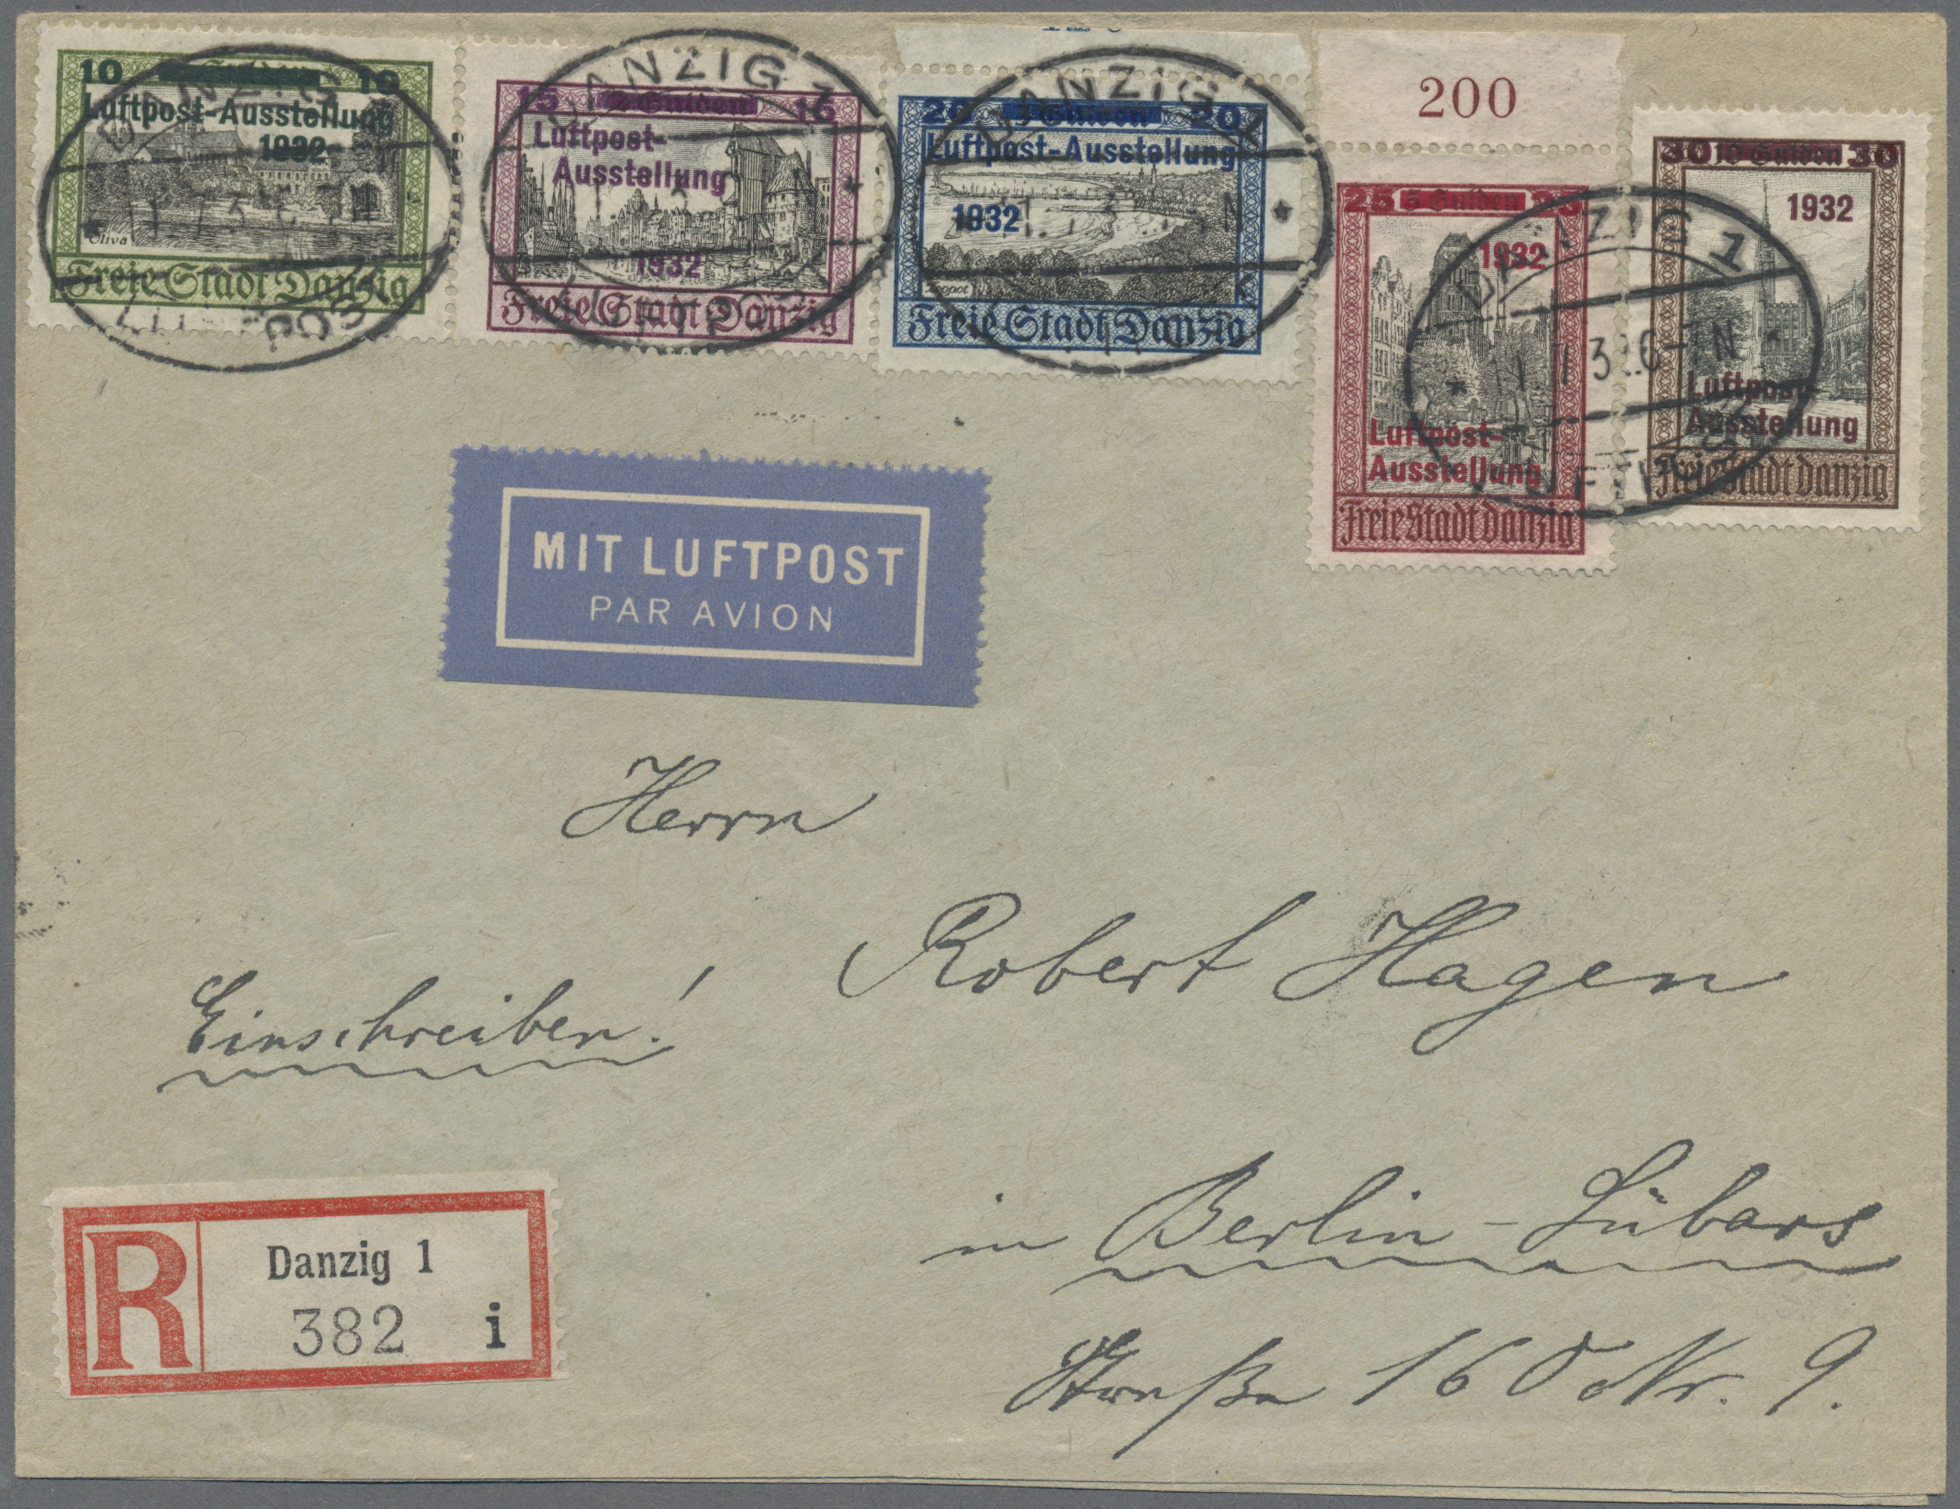 10 10
Luftpost-Ausstellung
1932
Oliva
Freie Stadt Danzig
15 2 Gulden 15
Luftpost-
Ausstellung
1932
Freie Stadt Danzig
20 Gulden 20
Luftpost-Ausstellung
1932
Zoppot
Freie Stadt Danzig
200
25 5 Gulden 25
1932
Luftpost-
Ausstellung
Freie Stadt Danzig
30 10 Gulden 30
1932
Luftpost-
Ausstellung
Freie Stadt Danzig
DANZIG 1
LUFTPOST
DANZIG 1
LUFTPOST
DANZIG 1
DANZIG 1
LUFTPOST
MIT LUFTPOST
PAR AVION
Herrn
Robert Hagen
Einschreiben!
in Berlin-Lübars
Straße 160 Nr. 9.
R
Danzig 1
382 i